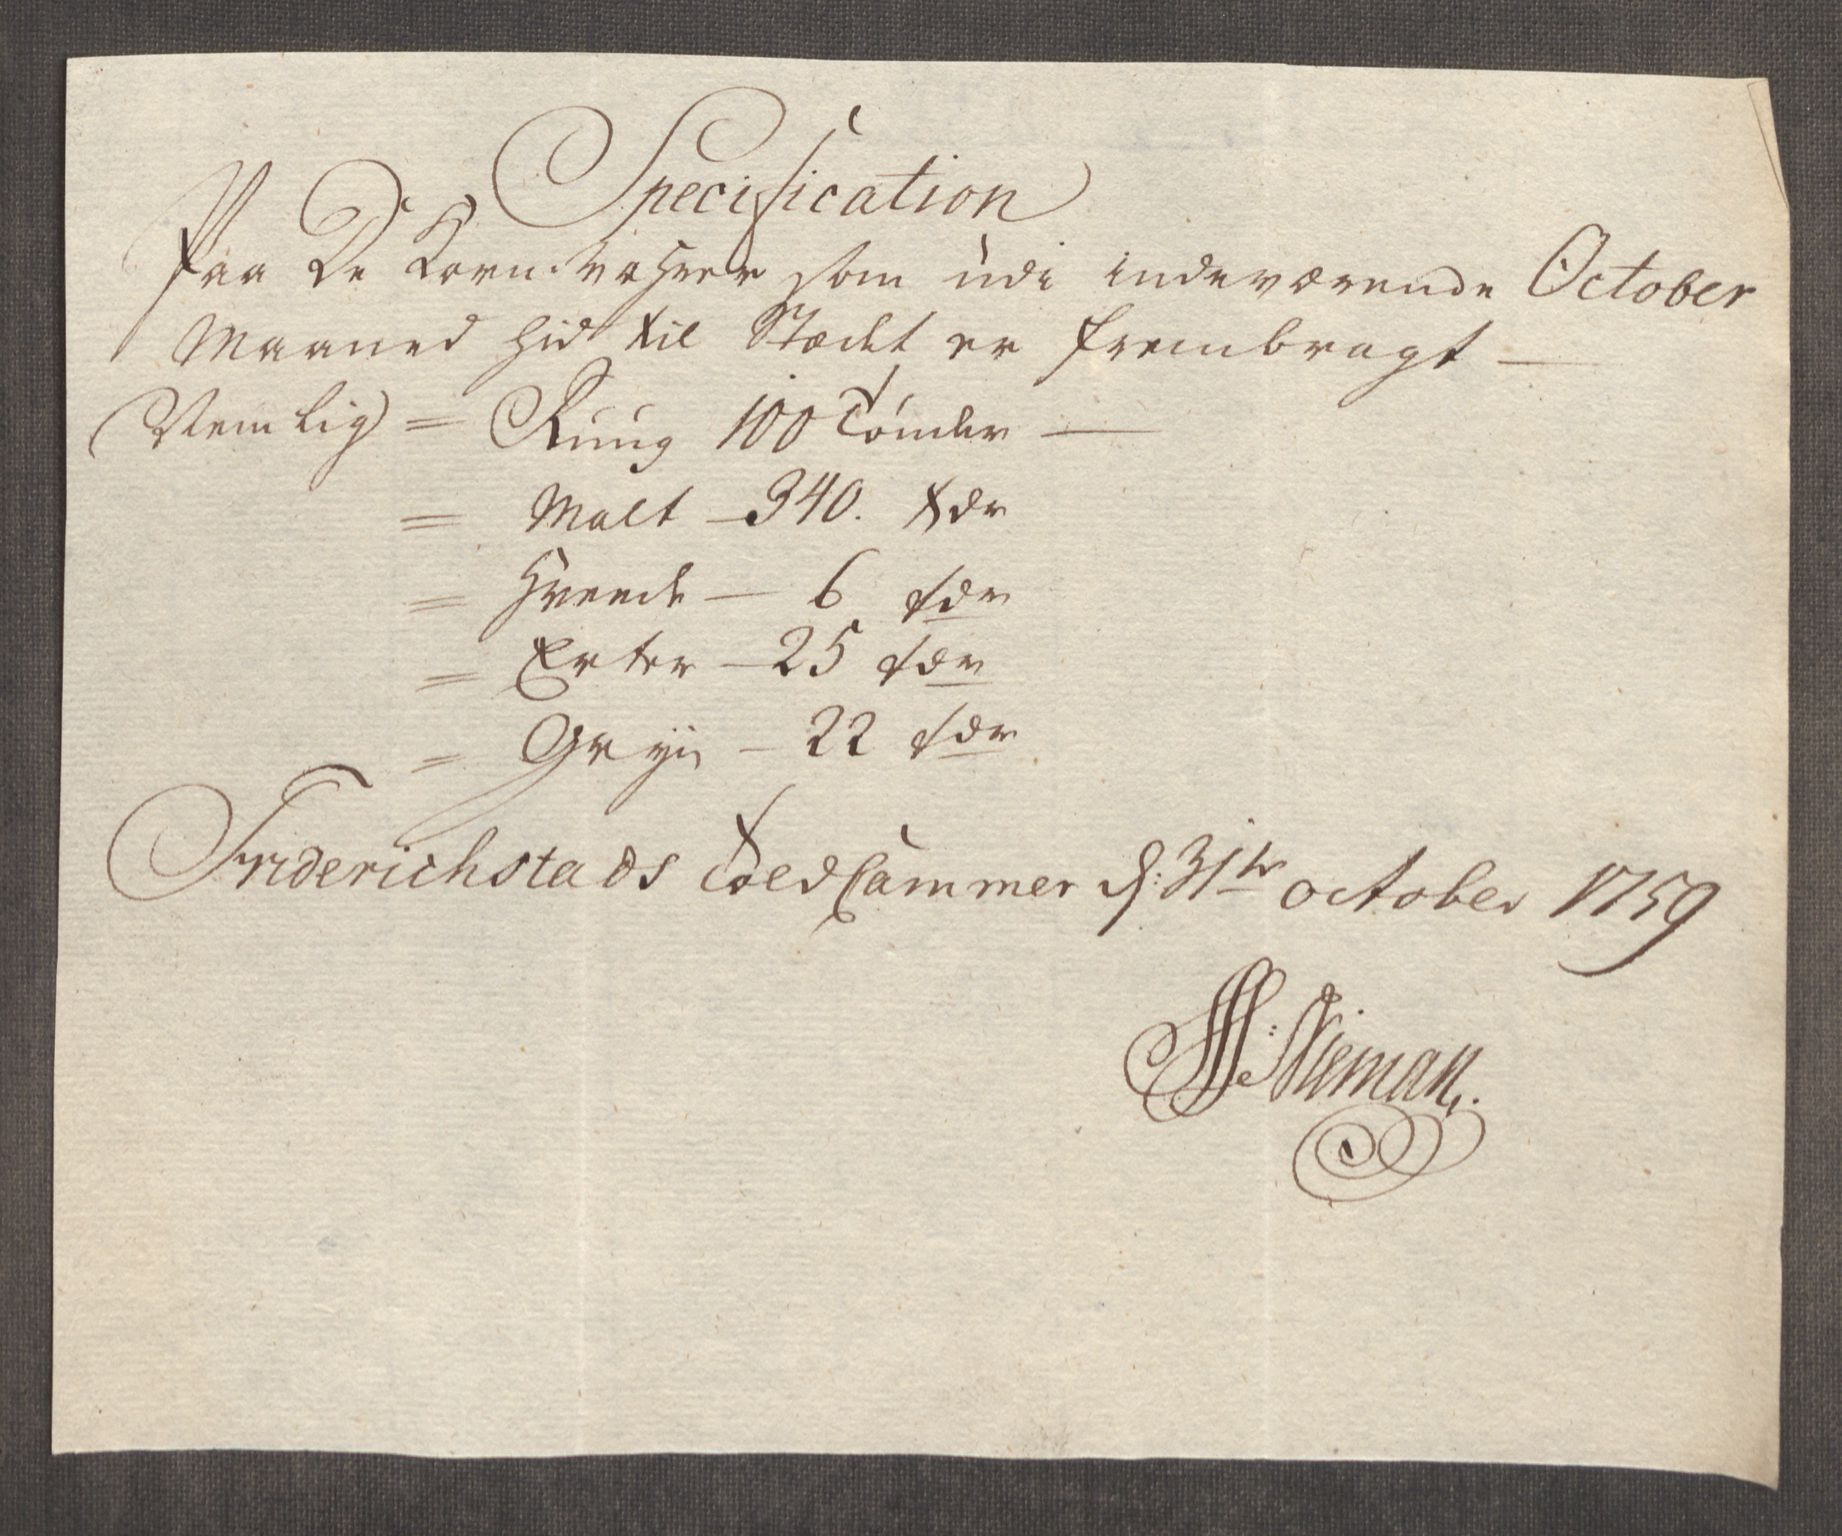 Specification
Paa De Korn Vahrer som udi indeværende October
Maaned hid til Stædet er frembragt —
Nemlig = Rüug 100 Tönder —
= Malt — 340. tdr
= Hveede — 6 tdr
= Erter — 25 tdr
= Gryn — 22 tdr
Friderichstads Told Cammer d: 31te october 1759
Nieman